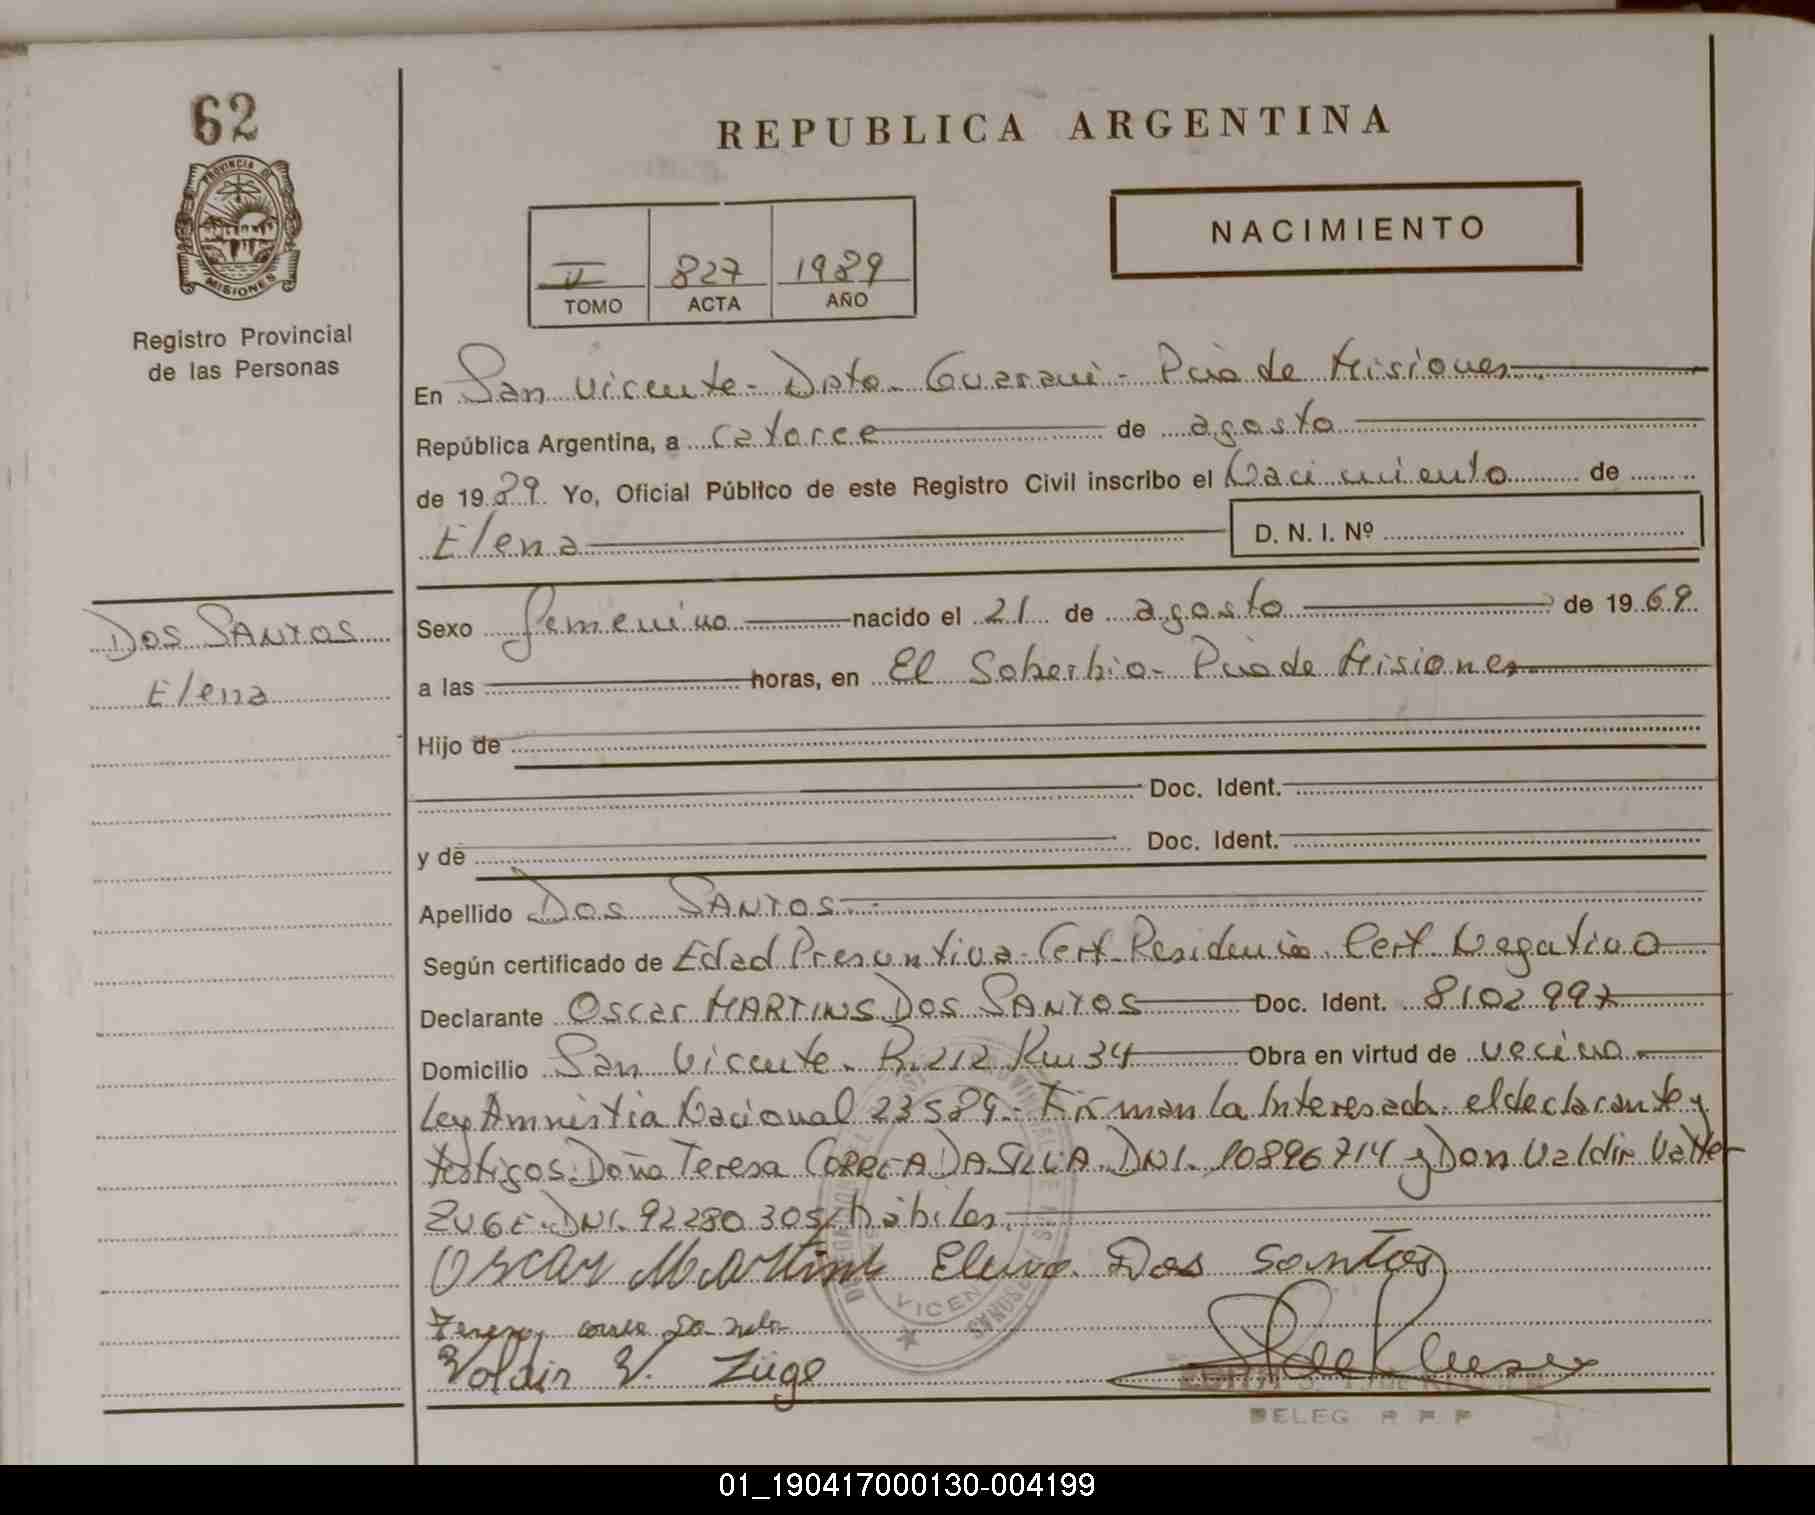 62
PROVINCIA DE
MISIONES
Registro Provincial
de las Personas
REPUBLICA ARGENTINA
NACIMIENTO
II 827 1989
TOMO ACTA AÑO
En San Vicente - Dpto. Guarani - Pcia de Misiones
República Argentina, a catorce de agosto
de 1989 Yo, Oficial Público de este Registro Civil inscribo el Nacimiento de
Elena D. N. I. Nº
DOS SANTOS
Elena
Sexo femenino nacido el 21 de agosto de 1969
a las horas, en El Soberbio - Pcia de Misiones
Hijo de
Doc. Ident.
y de Doc. Ident.
Apellido DOS SANTOS
Según certificado de Edad Presuntiva - Cert. Residencia. Cert. Negativo
Declarante Oscar MARTINS DOS SANTOS Doc. Ident. 8102997
Domicilio San Vicente. R. 212 Km 34 Obra en virtud de vecino
Ley Amnistia Nacional 23589. Firman la Interesada. el declarante y
testigos. Doña Teresa CORREA DA SILVA. DNI. 10896714 y Don Valdir Valter
ZUGE. DNI. 92280305, hábiles.
Oscar Martins Elena Dos Santos
Teresa correa Da silva
Valdir V. Züge
VICEN
DELEG R P P
01_190417000130-004199